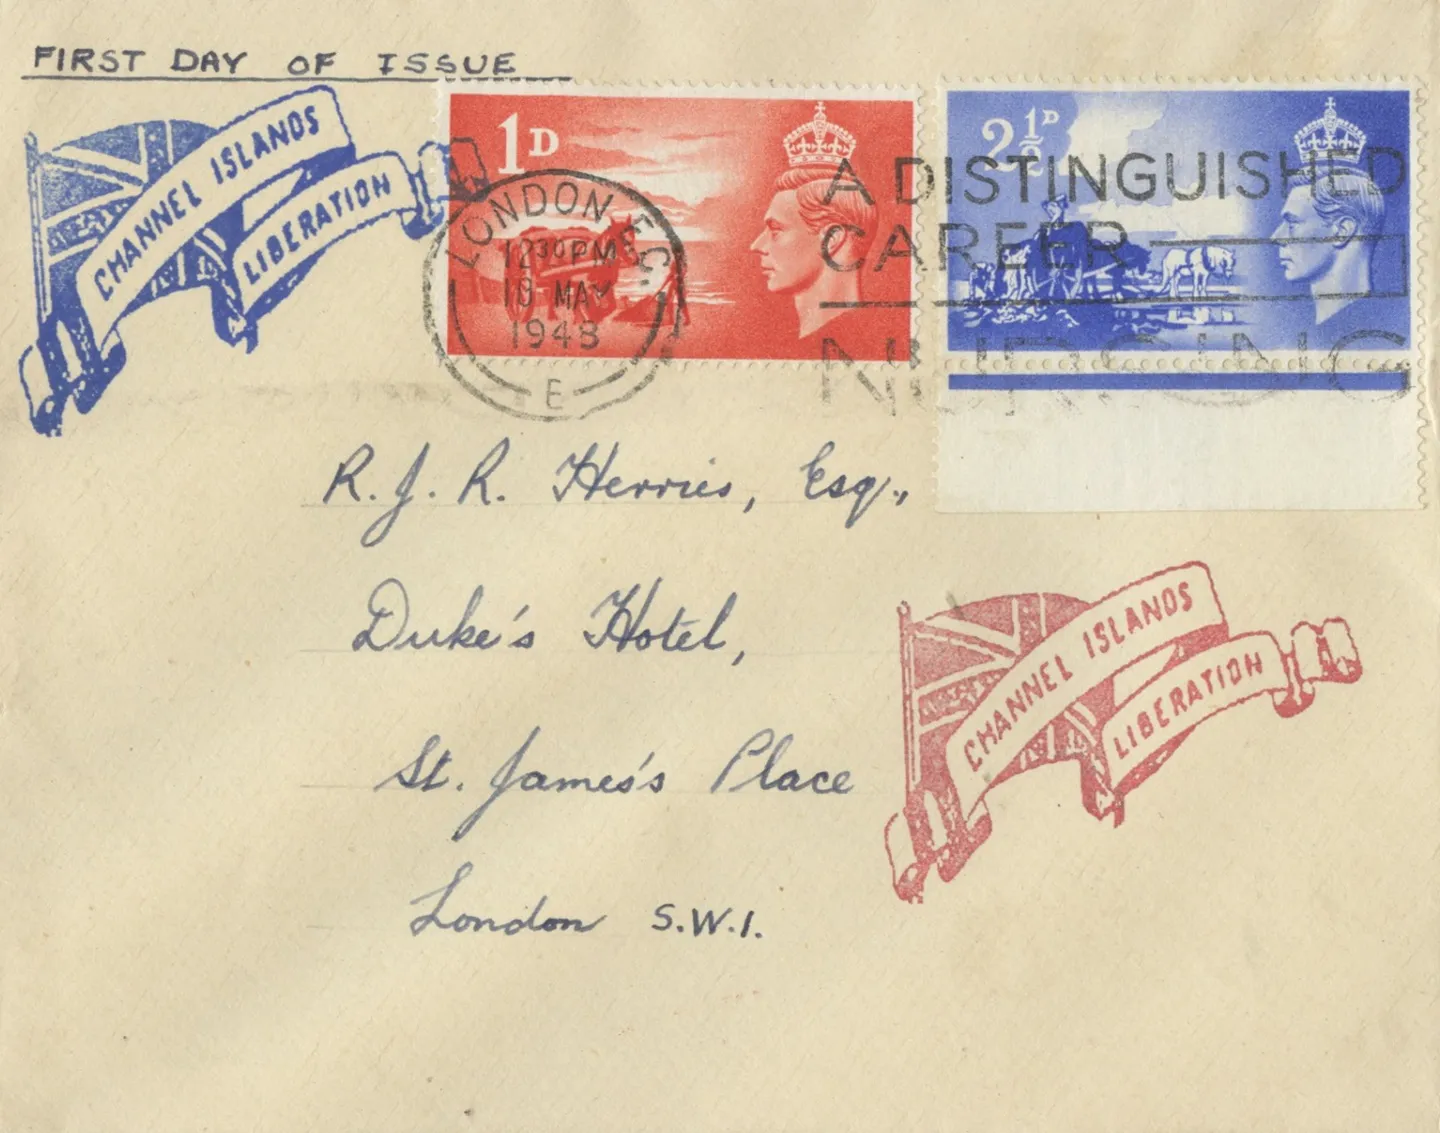 FIRST DAY OF ISSUE
CHANNEL ISLANDS
LIBERATION
1D
2½D
LONDON, E.C.
12 30 PM
10 MAY
1948
E
A DISTINGUISHED
CAREER
NURSING
R. J. R. Herries, Esq.,
Duke's Hotel,
St. James's Place
London S.W.1.
CHANNEL ISLANDS
LIBERATION